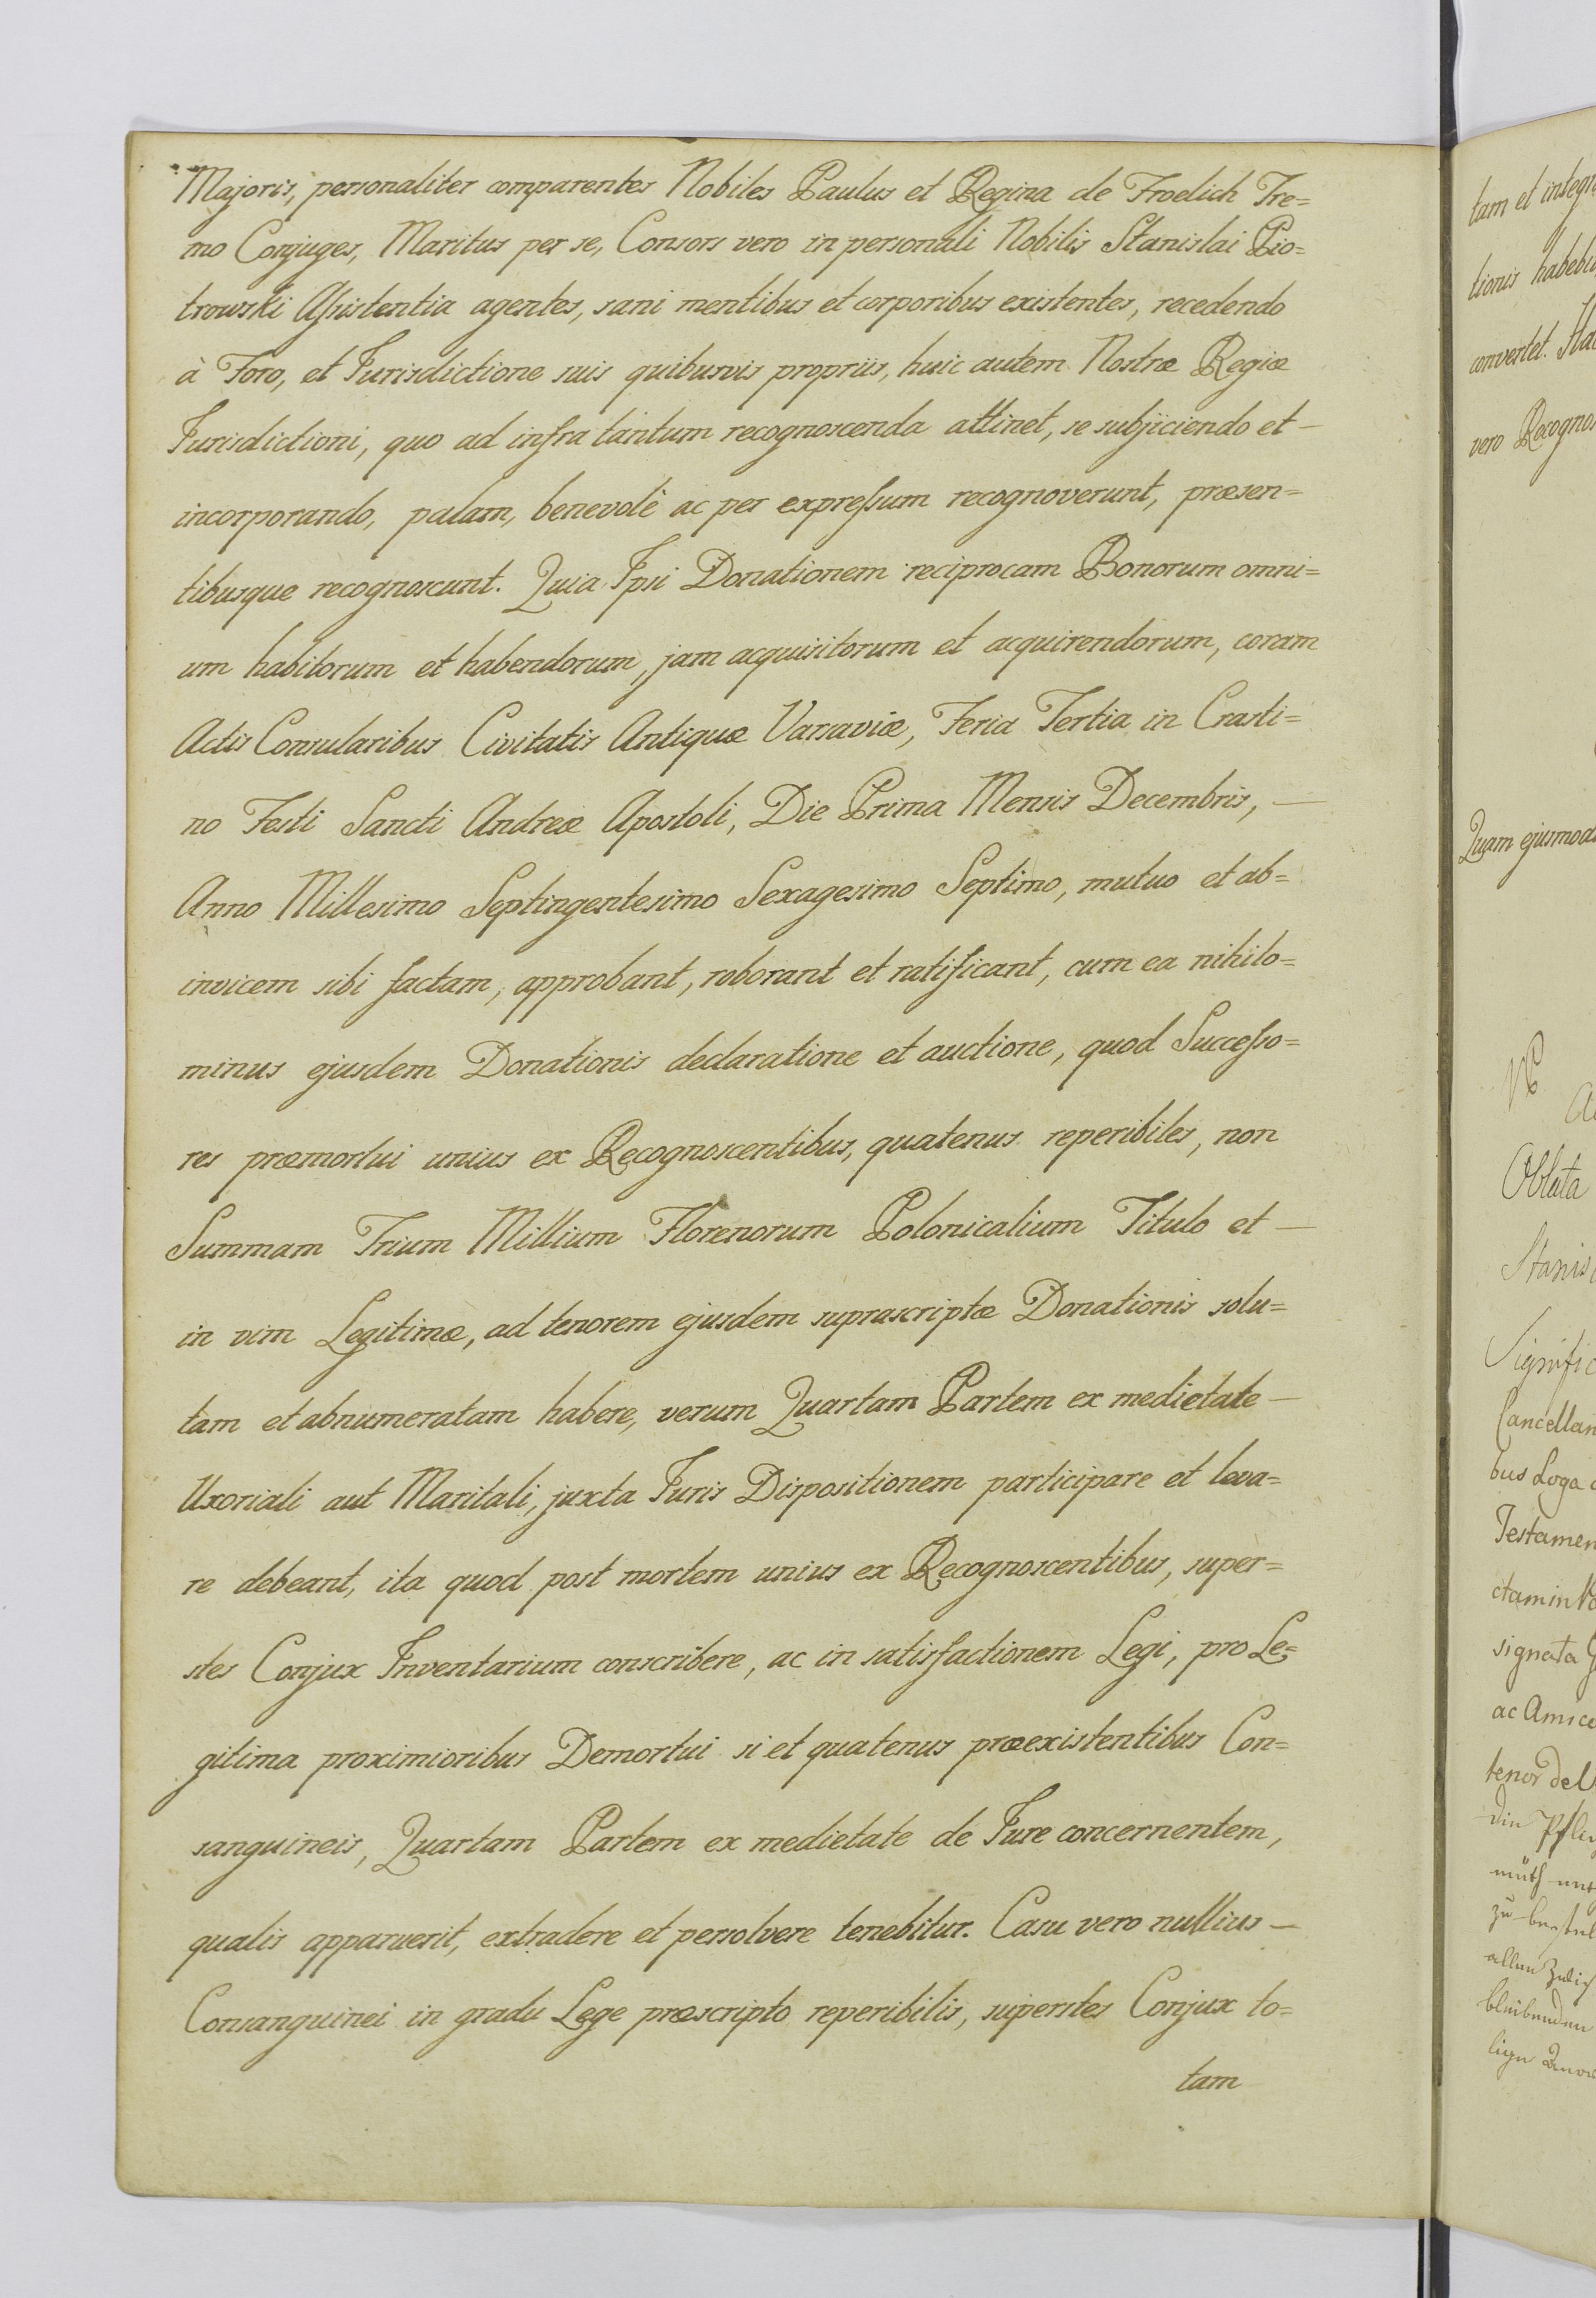 Majoris, personaliter comparentes Nobiles Paulus et Regina de Froelich Tre=
mo Conjuges, Maritus per se, Consors vero in personali Nobilis Stanislai Pio=
trowski Aſsistentia agentes, sani mentibus et corporibus existentes, recedendo
à Foro, et Jurisdictione suis quibusvis propriis, huic autem Nostræ Regiæ
Jurisdictioni, quo ad infra tantum recognoscenda attinet, se subjiciendo et —
incorporando, palam, benevolè ac per expreſsum recognoverunt, præsen=
tibusque recognoscunt. Quia Ipsi Donationem reciprocam Bonorum omni=
um habitorum et habendorum, jam acquisitorum et acquirendorum, coram
Actis Consularibus Civitatis Antiquæ Varsaviæ, Feria Tertia in Crasti=
no Festi Sancti Andreæ Apostoli, Die Prima Mensis Decembris, —
Anno Millesimo Septingentesimo Sexagesimo Septimo, mutuo et ab=
invicem sibi factam, approbant, roborant et ratificant, cum ea nihilo=
minus ejusdem Donationis declaratione et auctione, quod Succeſso=
res præmortui unius ex Recognoscentibus, quatenus reperibiles, non
Summam Trium Millium Florenorum Polonicalium Titulo et —
in vim Legitimæ, ad tenorem ejusdem suprascriptæ Donationis solu=
tam et abnumeratam habere, verum Quartam Partem ex medietate —
Uxoriali aut Maritali, juxta Juris Dispositionem participare et leva=
re debeant, ita quod post mortem unius ex Recognoscentibus, super=
stes Conjux Inventarium conscribere, ac in satisfactionem Legi, pro Le=
gitima proximioribus Demortui si et quatenus præexistentibus Con=
sanguineis, Quartam Partem ex medietate de Jure concernentem,
qualis apparuerit, extradere et persolvere tenebitur. Casu vero nullius —
Consanguinei in gradu Lege præscripto reperibilis, superstes Conjux to=
tam
tam et
tionis
convertet.
vero
Quam
Oblata
bus
signata
ac
tenor